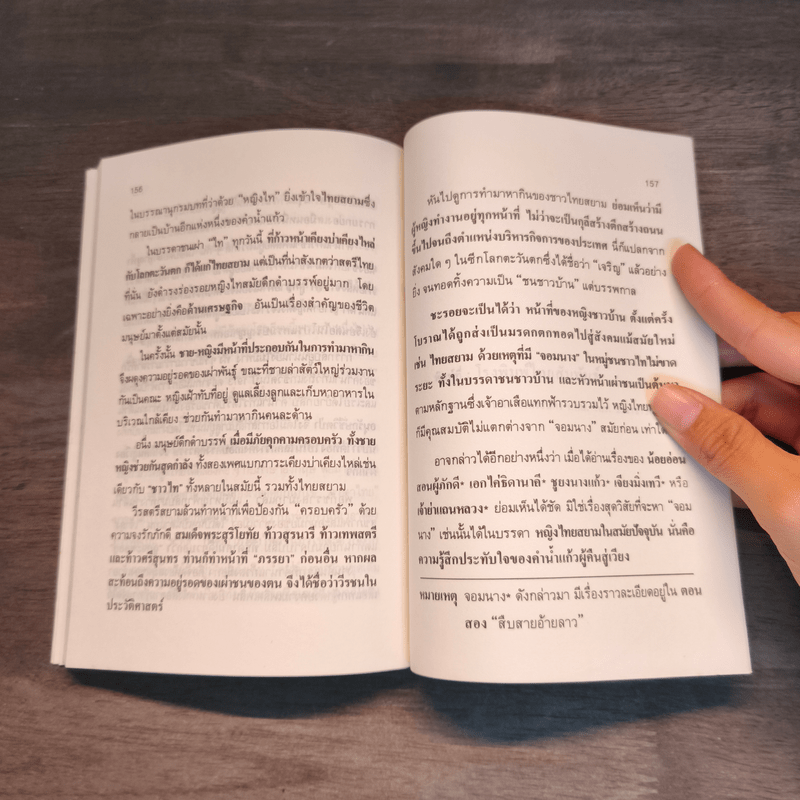 156
ในบรรณานุกรมบทที่ว่าด้วย “หญิงไท” ยิ่งเข้าใจไทยสยามซึ่ง
กลายเป็นบ้านอีกแห่งหนึ่งของคำน้ำแก้ว
ในบรรดาชนเผ่า “ไท” ทุกวันนี้ ที่ก้าวหน้าเคียงบ่าเคียงไหล่
กับโลกตะวันตก ก็ได้แก่ไทยสยาม แต่เป็นที่น่าสังเกตว่าสตรีไทย
ที่นั่น ยังดำรงร่องรอยหญิงไทสมัยดึกดำบรรพ์อยู่มาก โดย
เฉพาะอย่างยิ่งคือด้านเศรษฐกิจ อันเป็นเรื่องสำคัญของชีวิต
มนุษย์มาตั้งแต่สมัยนั้น
ในครั้งนั้น ชาย-หญิงมีหน้าที่ประกอบกันในการทำมาหากิน
จึงผดุงความอยู่รอดของเผ่าพันธุ์ ขณะที่ชายล่าสัตว์ใหญ่ร่วมงาน
กันเป็นคณะ หญิงเฝ้าทับที่อยู่ ดูแลเลี้ยงลูกและเก็บหาอาหารใน
บริเวณใกล้เคียง ช่วยกันทำมาหากินคนละด้าน
อนึ่ง มนุษย์ดึกดำบรรพ์ เมื่อมีภัยคุกคามครอบครัว ทั้งชาย
หญิงช่วยกันสุดกำลัง ทั้งสองเพศแบกภาระเคียงบ่าเคียงไหล่เช่น
เดียวกับ “ชาวไท” ทั้งหลายในสมัยนี้ รวมทั้งไทยสยาม
วีรสตรีสยามล้วนทำหน้าที่เพื่อป้องกัน “ครอบครัว” ด้วย
ความจงรักภักดี สมเด็จพระสุริโยทัย ท้าวสุรนารี ท้าวเทพสตรี
และท้าวศรีสุนทร ท่านก็ทำหน้าที่ “ภรรยา” ก่อนอื่น หากผล
สะท้อนถึงความอยู่รอดของเผ่าชนของตน จึงได้ชื่อว่าวีรชนใน
ประวัติศาสตร์
157
หันไปดูการทำมาหากินของชาวไทยสยาม ย่อมเห็นว่ามี
ผู้หญิงทำงานอยู่ทุกหน้าที่ ไม่ว่าจะเป็นกุลีสร้างตึกสร้างถนน
ขึ้นไปจนถึงตำแหน่งบริหารกิจการของประเทศ นี่ก็แปลกจาก
สังคมใด ๆ ในซีกโลกตะวันตกซึ่งได้ชื่อว่า “เจริญ” แล้วอย่าง
ยิ่ง จนทอดทิ้งความเป็น “ชนชาวบ้าน” แต่บรรพกาล
ชะรอยจะเป็นได้ว่า หน้าที่ของหญิงชาวบ้าน ตั้งแต่ครั้ง
โบราณได้ถูกส่งเป็นมรดกตกทอดไปสู่สังคมแม้สมัยใหม่
เช่น ไทยสยาม ด้วยเหตุที่มี “จอมนาง” ในหมู่ชนชาวไทไม่ขาด
ระยะ ทั้งในบรรดาชนชาวบ้าน และหัวหน้าเผ่าชนเป็นต้นมา
ตามหลักฐานซึ่งเจ้าอาเสือแทกฟ้ารวบรวมไว้ หญิงไทย
ก็มีคุณสมบัติไม่แตกต่างจาก “จอมนาง” สมัยก่อน เท่าใด
อาจกล่าวได้อีกอย่างหนึ่งว่า เมื่อได้อ่านเรื่องของ น้อยอ่อน
สอนผู้ภักดี* เอกไค่ธิดานาลี* ชูยงนางแก้ว* เจียงมิ่งเทวี* หรือ
เจ้าย่าแถนหลวง* ย่อมเห็นได้ชัด มิใช่เรื่องสุดวิสัยที่จะหา “จอม
นาง” เช่นนั้นได้ในบรรดา หญิงไทยสยามในสมัยปัจจุบัน นั่นคือ
ความรู้สึกประทับใจของคำน้ำแก้วผู้คืนสู่เวียง
หมายเหตุ จอมนาง* ดังกล่าวมา มีเรื่องราวละเอียดอยู่ใน ตอน
สอง “สืบสายอ้ายลาว”